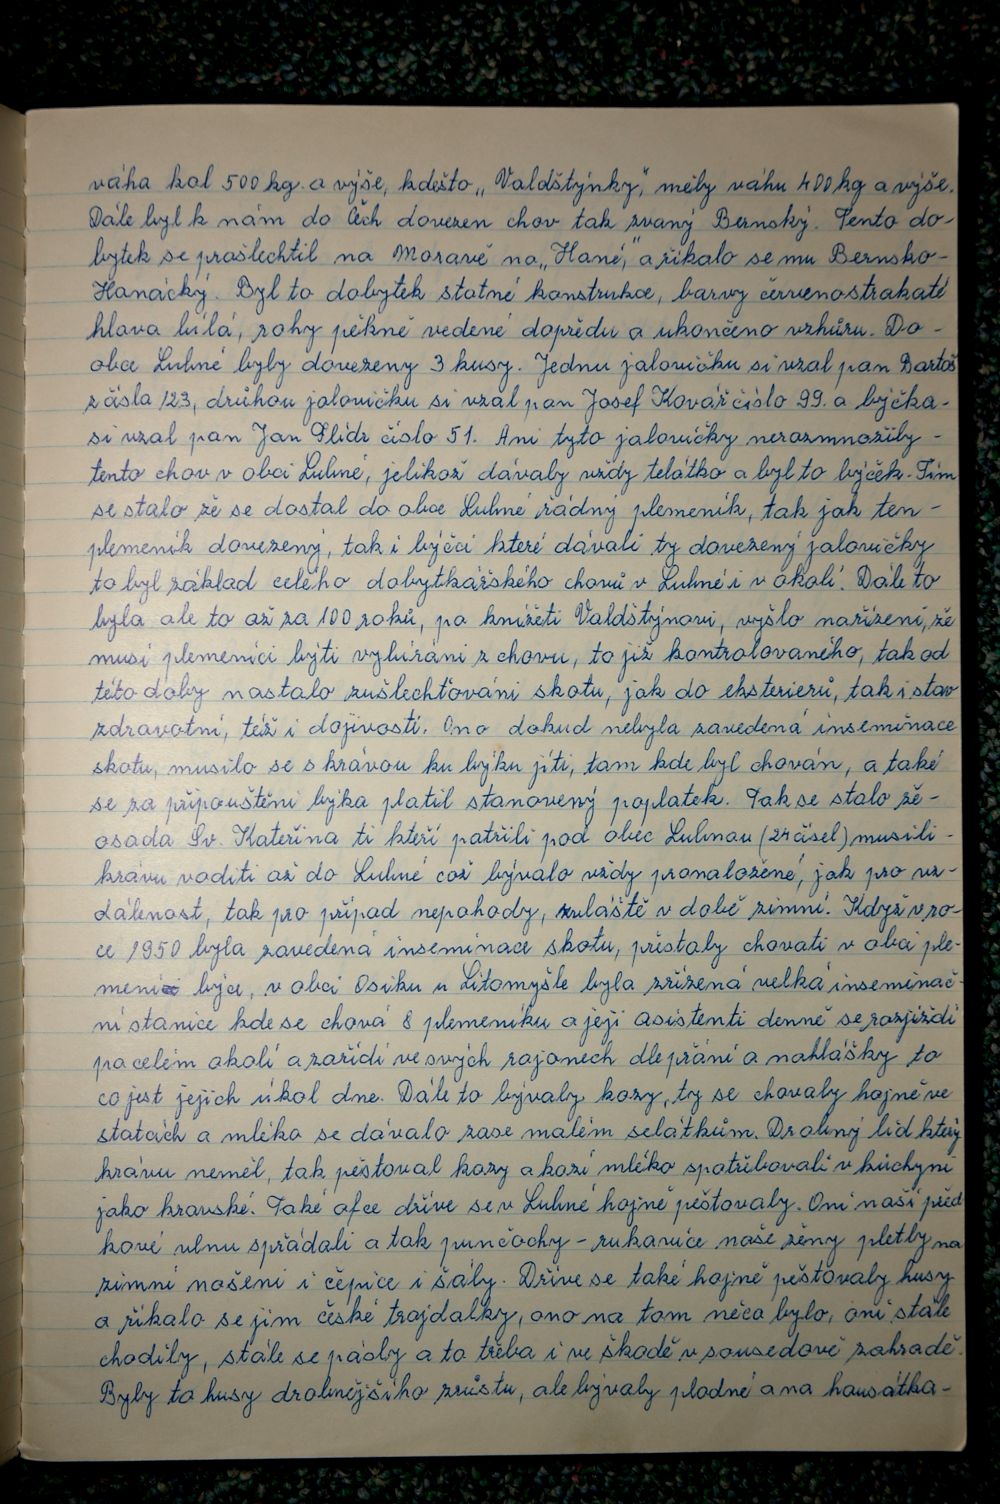 váha kol 500 kg. a výše, kdešto „Valdštýnky“, měly váhu 400 kg a výše.
Dále byl k nám do Čěch dovezen chov tak zvaný Bernský. Tento do-
bytek se prošlechtil na Moravě na „Hané,“ a říkalo se mu Bernsko-
Hanácký. Byl to dobytek statné konstrukce, barvy červenostrakaté
hlava bílá, rohy pěkně vedené dopředu a ukončeno vzhůru. Do-
obce Lubné byly dovezeny 3 kusy. Jednu jalovičku si vzal pan Bartoš
z čísla 123, drůhou jalovičku si vzal pan Josef Kovář číslo 99. a býčka-
si vzal pan Jan Flídr číslo 51. Ani tyto jalovičky nerozmnožily -
tento chov v obci Lubné, jelikož dávaly vždy telátko a byl to býček. Tím
se stalo žě se dostal do obce Lubné řádný plemeník, tak jak ten -
plemeník dovezený, tak i býčci které dávali ty dovezený jalovičky
to byl základ celého dobytkářského chovů v Lubné i v okolí. Dále to
byla ale to až za 100 roků, po knížeti Valdštýnovi, vyšlo nařízení, žě
musí plemeníci býti vybíráni z chovu, to již kontrolovaného, tak od
této doby nastalo zušlechťováni skotu, jak do eksterierů, tak i stav
zdravotní, též i dojivostí. Ono dokud nébyla zavedená inseminace
skotu, musilo se s krávou ku býku jíti, tam kde byl chován, a také
se za připouštěni býka platil stanovený poplatek. Tak se stalo žě -
osada Sv. Kateřina ti kteří patřili pod obec Lubnou (24 čísel) musili -
krávu voditi až do Lubné což bývalo vždy pronaložěné, jak pro vz-
dálenost, tak pro případ nepohody, zvláště v době zimní. Když v ro-
ce 1950 byla zavedená inseminace skotu, přistaly chovati v obci ple-
meni býci, v obci Osiku u Litomyšle byla zřízená velká inseminač-
ní stanice kde se chová 8 plemeníku a její asistenti denně se rozjíždí
po celém okolí a zařídí ve svých rajonech dle přání a nahlášky to
co jest jejich úkol dne. Dále to bývaly kozy, ty se chovaly hojně ve
statcích a mléko se dávalo zase malém selátkům. Drobný lid který
krávu neměl, tak pěstoval kozy a kozí mléko spotřebovali v kůchyni
jako kravské. Také ofce dříve se v Lubné hojně pěštovaly. Oni naší před
kové vlnu spřádali a tak punčochy - rukavice naše žěny pletly na
zimní nošeni i čěpice i šály. Dříve se také hojně pěštovaly husy
a říkalo se jim české trajdalky, ono na tom něco bylo, oni stále
chodily, stále se pásly a to třeba i ve škodě v sousedově zahradě.
Byly to husy drobnějšího zrůstu, ale bývaly plodné a na housátka-